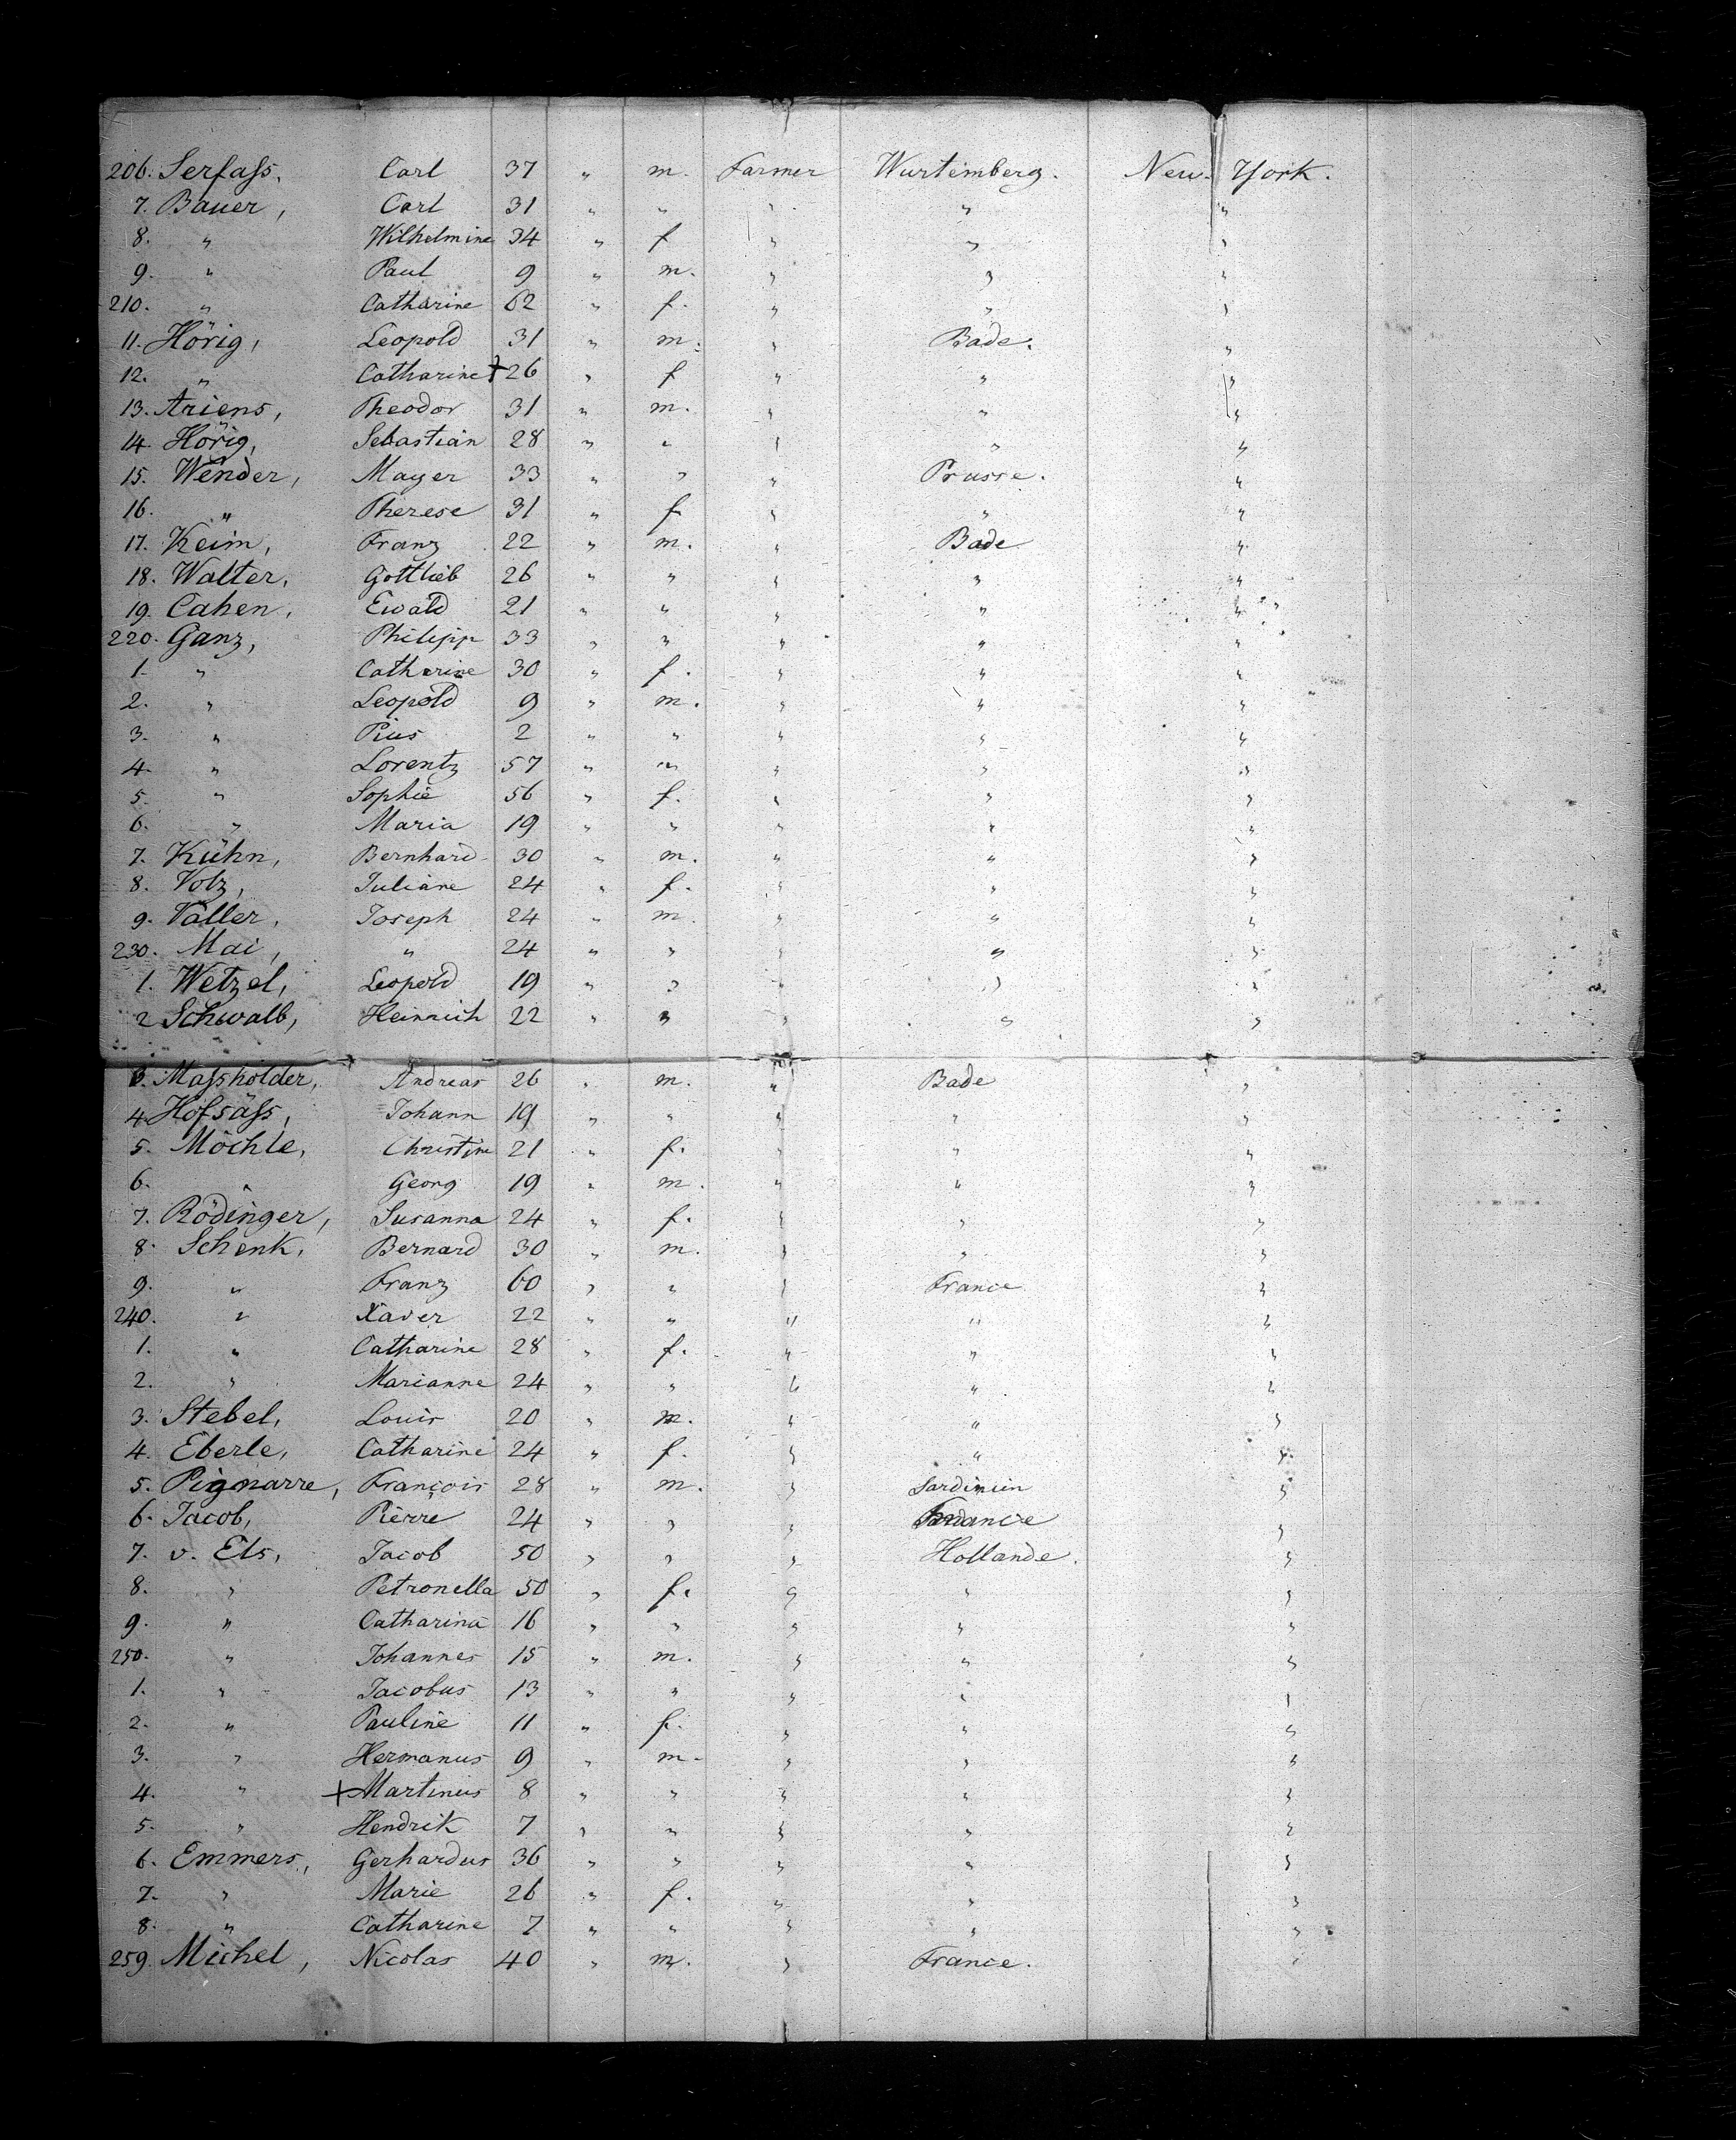 206. Serfaſs, Carl 37 " m. Farmer Wurtemberg. New York.
7. Bauer, Carl 31 " " " " "
8. " Wilhelmine 34 " f " " "
9. " Paul 9 " m. " " "
210. " Catharine 62 " f. " " "
11. Hörig, Leopold 31 " m. " Bade. "
12. " Catharine + 26 " f " " "
13. Ariens, Theodor 31 " m. " " "
14. Hörig, Sebastian 28 " " " " "
15. Wender, Mayer 33 " " " Prusse. "
16. " Therese 31 " f " " "
17. Keim, Franz 22 " m. " Bade "
18. Walter, Gottlieb 26 " " " " "
19. Cahen, Ewald 21 " " " " "
220. Ganz, Philipp 33 " " " " "
1. " Catharine 30 " f. " " "
2. " Leopold 9 " m. " " "
3. " Pius 2 " " " " "
4. " Lorentz 57 " " " " "
5. " Sophie 56 " f. " " "
6. " Maria 19 " " " " "
7. Kühn, Bernhard 30 " m. " " "
8. Volz, Juliane 24 " f. " " "
9. Valler, Joseph 24 " m. " " "
230. Mai, " 24 " " " " "
1. Wetzel, Leopold 19 " " " " "
2 Schwalb, Heinrich 22 " " " " "
3. Maſsholder, Andreas 26 " m. " Bade "
4. Hofsäſs, Johann 19 " " " " "
5. Möchle, Christine 21 " f. " " "
6. " Georg 19 " m. " " "
7. Rödinger, Susanna 24 " f. " " "
8. Schenk, Bernard 30 " m. " " "
9. " Franz 60 " " " France "
240. " Xaver 22 " " " " "
1. " Catharine 28 " f. " " "
2. " Marianne 24 " " " " "
3. Stebel, Louis 20 " m. " " "
4. Eberle, Catharine 24 " f. " " "
5. Pignarre, François 28 " m. " Sardinien "
6. Jacob, Pierre 24 " " " "
7. v. Els, Jacob 50 " " " Hollande. "
8. " Petronella 50 " f. " " "
9. " Catharina 16 " " " " "
250. " Johannes 15 " m. " " "
1. " Jacobus 13 " " " " "
2. " Pauline 11 " f. " " "
3. " Hermanus 9 " m. " " "
4. " + Martinus 8 " " " " "
5. " Hendrik 7 " " " " "
6. Emmers, Gerhardus 36 " " " " "
7. " Marie 26 " f. " " "
8. " Catharine 7 " " " " "
259. Michel, Nicolas 40 " m. " France. "